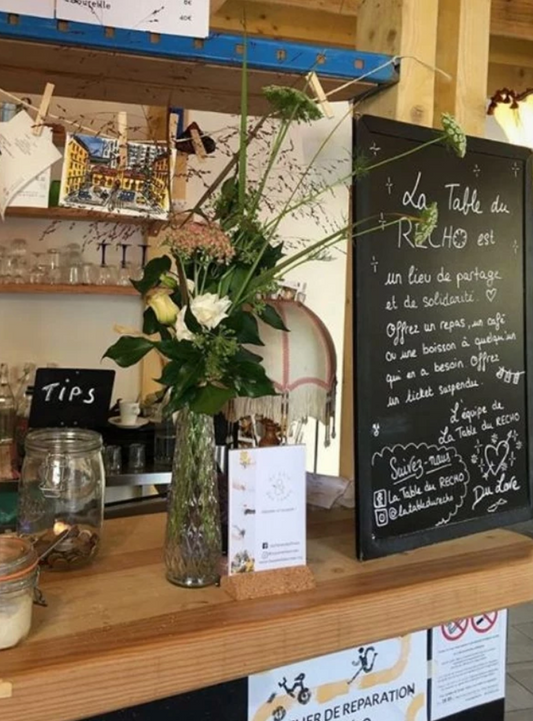 6€
40€
TIPS
La Table du
RECHO est
un lieu de partage
et de solidarité. ♡
Offrez un repas, un café
ou une boisson à quelqu'un
qui en a besoin. Offrez
un ticket suspendu.
L'équipe de
La Table du RECHO
Suivez-nous
La Table du RECHO
@latabledurecho
Du Love
DE REPARATION